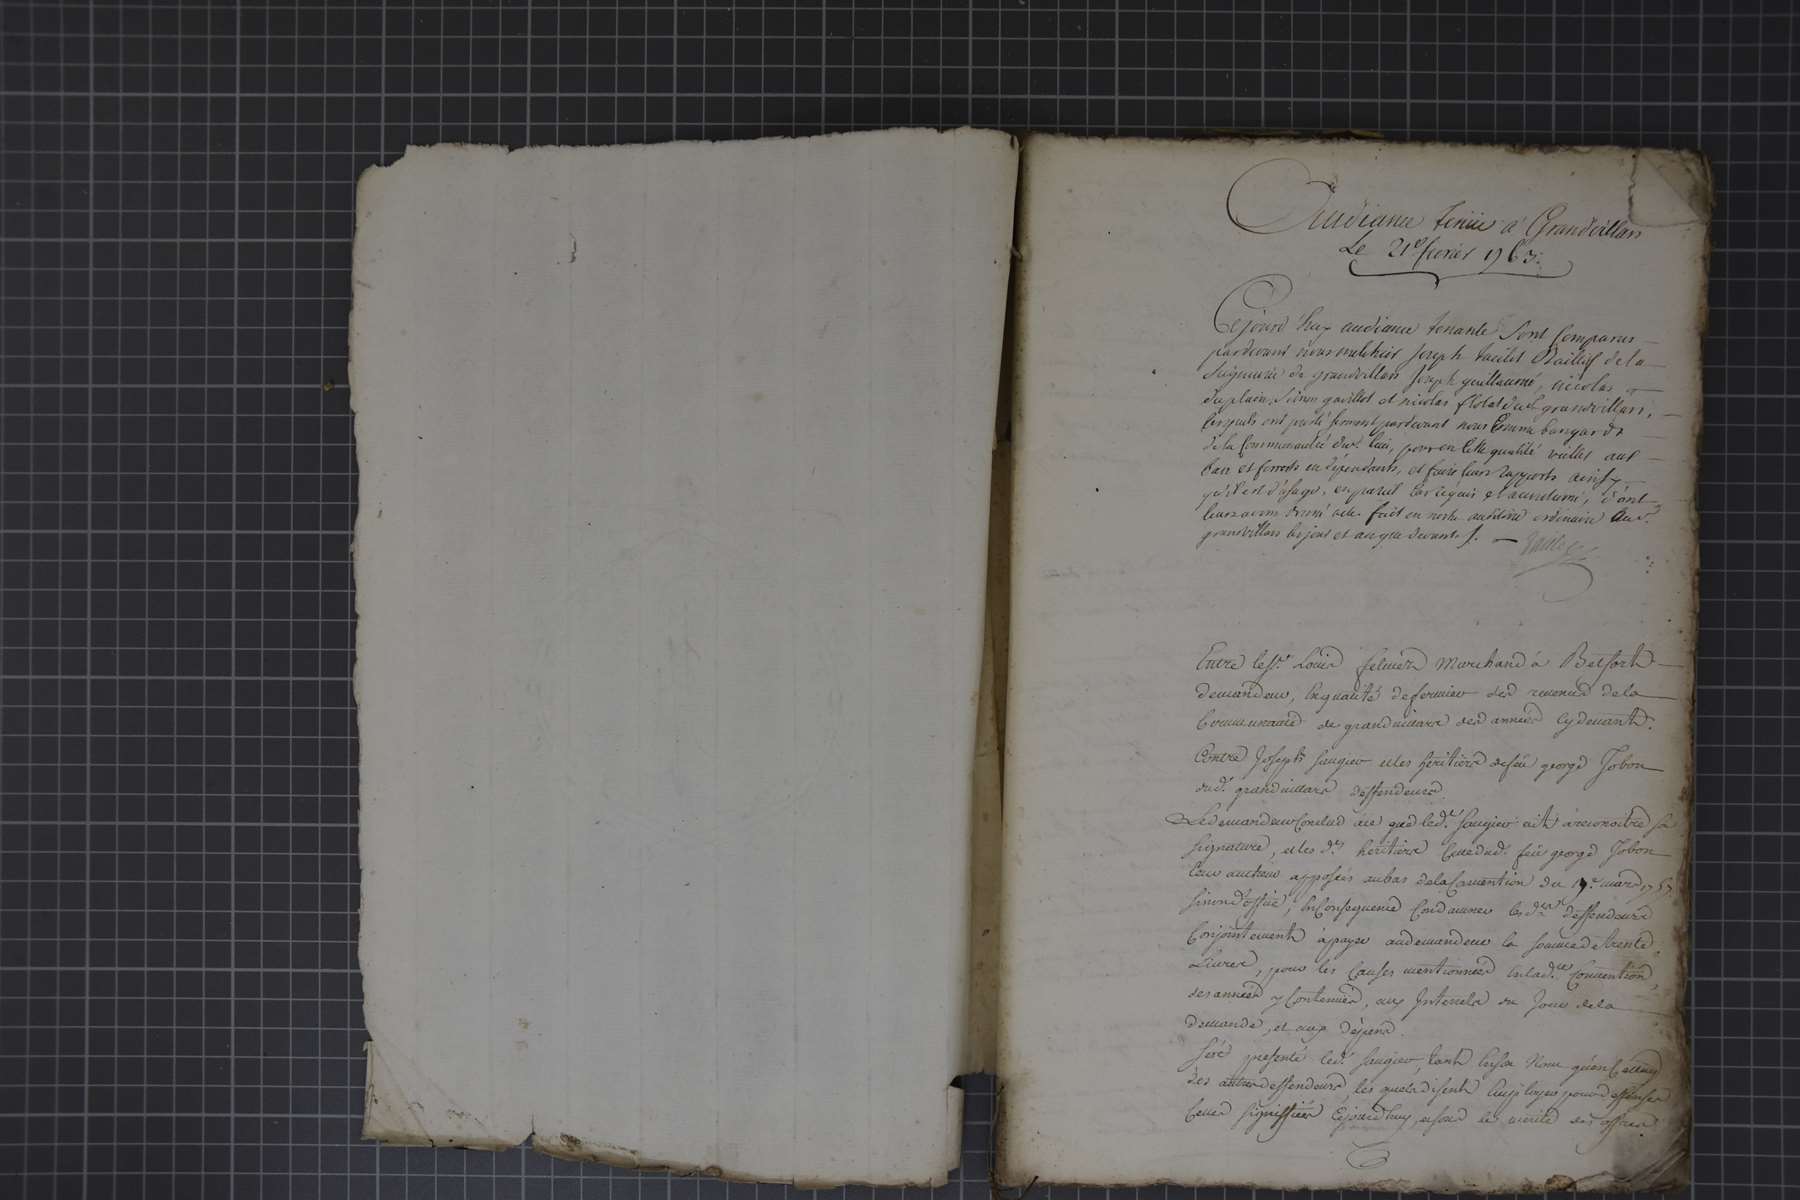 Audiance tenüe à Grandvillars
Le 21e fevrier 1763.
Cejourd'huy audiance tenante sont Comparus
pardevant nous melchior Joseph taiclet Baillif de la
Seigneurie de grandvillars Joseph guillaume, nicolas
duplain, Simon gavillot et nicolas flotat dud. grandvillars,
lesquels ont preté serment pardevant nous Comme bangards
de la Communauté dud. lieu, pour en Cette qualité veiller aux
et forrests en dépendants, et faire leurs rapports ainsy
qu'il est d'usage, en pareil Cas requis et accoutumé, dont
leurs avons donné acte fait en nostre auditoire ordinaire aud.
grandvillars les jour et an que devant.
taiclet
Entre le Sr. Loüis feltier Marchand à Belfort
demandeur, en qualité de fermier des revenus de la
Communauté de grandvillars des années cy devant.
Contre Joseph Saugier et les héritiers de feu george Jobon
dud. grandvillars deffendeurs
Le demandeur Conclud à ce que led. Saugier ait à reconnoitre sa
signature, et les d. héritiers Celle dud. feu george Jobon
leur autheur apposées au bas de la Convention du 17e mars 1757
sinon d'office, en Consequence Condamner les d. deffendeurs
Conjointement à payer au demandeur la somme de trente
Livres, pour les Causes mentionnées en lad.te Convention,
des années y Contenües, aux Interets du Jour de la
demande, et aux dépens.
S'est presenté led. Saugier, tant en son Nom qu'en Celluy
des autres deffendeurs, lesquels disent employer pour deffenses
Celles signiffiées Cejourd'huy, et sous le mérite des offres